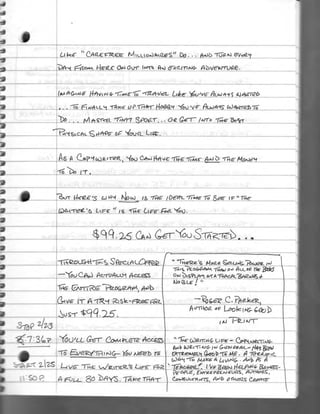 LIKE "CAREFREE MILLIONAIRES" DO... AND TURN EVERY
DAY FROM HERE ON OUT INTO AN EXCITING ADVENTURE.
IMAGINE HAVING TIME TO TRAVEL LIKE YOU'VE ALWAYS WANTED
... TO FINALLY TAKE UP THAT HOBBY YOU'VE ALWAYS WANTED TO
DO... MASTER THAT SPORT... OR GET INTO THE BEST
PHYSICAL SHAPE OF YOUR LIFE.
AS A COPYWRITER, YOU CAN HAVE THE TIME AND THE MONEY
TO DO IT.
BUT HERE'S WHY NOW, IS THE IDEAL TIME TO SEE IF "THE
WRITER'S LIFE" IS THE LIFE FOR YOU.
$99.25 CAN GET YOU STARTED...
THROUGH THIS SPECIAL OFFER
—YOU CAN ACTUALLY ACCESS
THE ENTIRE PROGRAM, AND
GIVE IT A TRY RISK-FREE FOR
JUST $99.25.
"THERE'S MORE SELLING POWER IN
THIS PROGRAM THAN IN ALL OF THE BOOKS
ON DISPLAY AT A TYPICAL BARNES &
NOBLE!"
—ROGER C. PARKER,
AUTHOR OF LOOKING GOOD
IN PRINT
STOP 2/23
7:36P
YOU'LL GET COMPLETE ACCESS
TO EVERYTHING YOU NEED TO
START 2/25
LIVE THE WRITER'S LIFE FOR
11:50P
A FULL 30 DAYS. TAKE THAT
"THE WRITING LIFE – COPYWRITING
AND WRITING IN GENERAL – HAS BEEN
EXTREMELY GOOD TO ME. A TERRIFIC
WAY TO MAKE A LIVING. AND AS A
TEACHER, I'VE BEEN HELPING BUSINESS-
PEOPLE, ENTREPRENEURS, AUTHORS,
CONSULTANTS, AND FITNESS COACHES